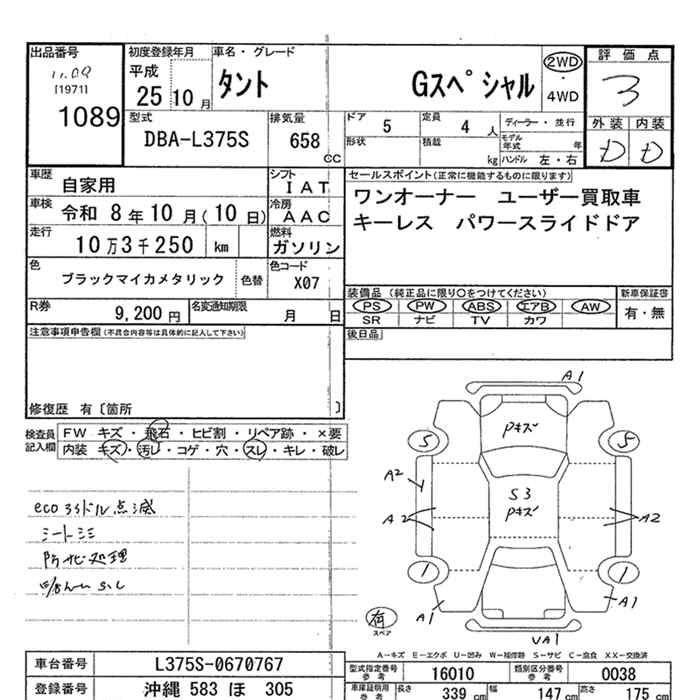 出品番号
[1971]
1089
初度登録年月
平成
25 10 月
車名・グレード
タント Gスペシャル
2WD
・
4WD
評価点
3
外装 内装
D D
型式
DBA-L375S
排気量
658
CC
ドア 5
定員 4 人
形状
積載 kg
ディーラー・並行
モデル年式 年
ハンドル 左・右
車歴
自家用
シフト
IAT
車検
令和 8年10月(10日)
冷房
AAC
走行
10万3千250 km
燃料
ガソリン
色
ブラックマイカメタリック
色替
色コード
X07
R券
9,200 円
名変通知期限
月 日
セールスポイント(正常に機能するものに限ります)
ワンオーナー ユーザー買取車
キーレス パワースライドドア
装備品(純正品に限り○をつけてください)
PS PW ABS エアB AW
SR ナビ TV カワ
新車保証書
有・無
後日品
注意事項申告欄(不具合内容等は具体的に記入して下さい)
修復歴 有〔箇所 〕
検査員
記入欄
FW キズ・飛石・ヒビ割・リペア跡・×要
内装 キズ・汚レ・コゲ・穴・スレ・キレ・破レ
eco アイドル点滅
シートシミ
防サビ処理
A1
Pキズ
S S
A2
S3
Pキズ
A2 A2
1 1
A1 A1
有
スペア
UA1
A-キズ E-エクボ U-凹み W-補修跡 S-サビ C-腐食 XX-交換済
車台番号
L375S-0670767
登録番号
沖縄 583 ほ 305
型式指定番号
参考
16010
類別区分番号
参考
0038
車庫証明用
参考
長さ 339 cm
幅 147 cm
高さ 175 cm